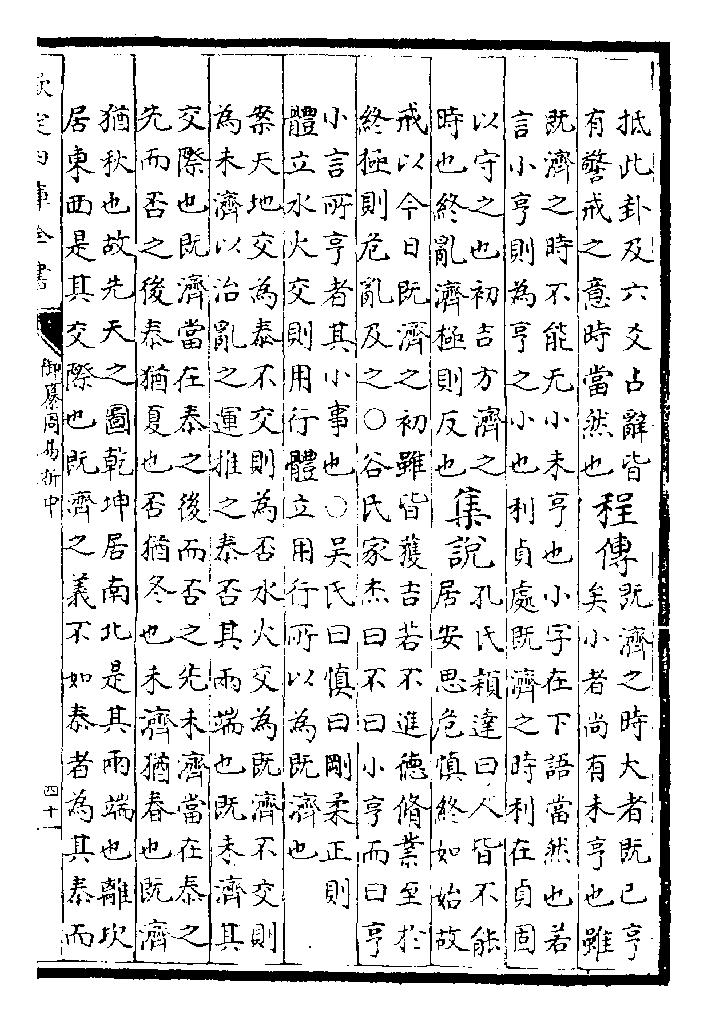 抵此卦及六爻占辭皆
有警戒之意時當然也
程傳
既濟之時大者既已亨
矣小者尚有未亨也雖
既濟之時不能无小未亨也小字在下語當然也若
言小亨則為亨之小也利貞處既濟之時利在貞固
以守之也初吉方濟之
時也終亂濟極則反也
集說
孔氏穎達曰人皆不能
居安思危慎終如始故
戒以今日既濟之初雖皆獲吉若不進德脩業至於
終極則危亂及之○谷氏家杰曰不曰小亨而曰亨
小言所亨者其小事也○吳氏曰慎曰剛柔正則
體立水火交則用行體立用行所以為既濟也
案天地交為泰不交則為否水火交為既濟不交則
為未濟以治亂之運推之泰否其兩端也既未濟其
交際也既濟當在泰之後而否之先未濟當在泰之
先而否之後泰猶夏也否猶冬也未濟猶春也既濟
猶秋也故先天之圖乾坤居南北是其兩端也離坎
居東西是其交際也既濟之義不如泰者為其泰而
欽定四庫全書
御纂周易折中
四十一